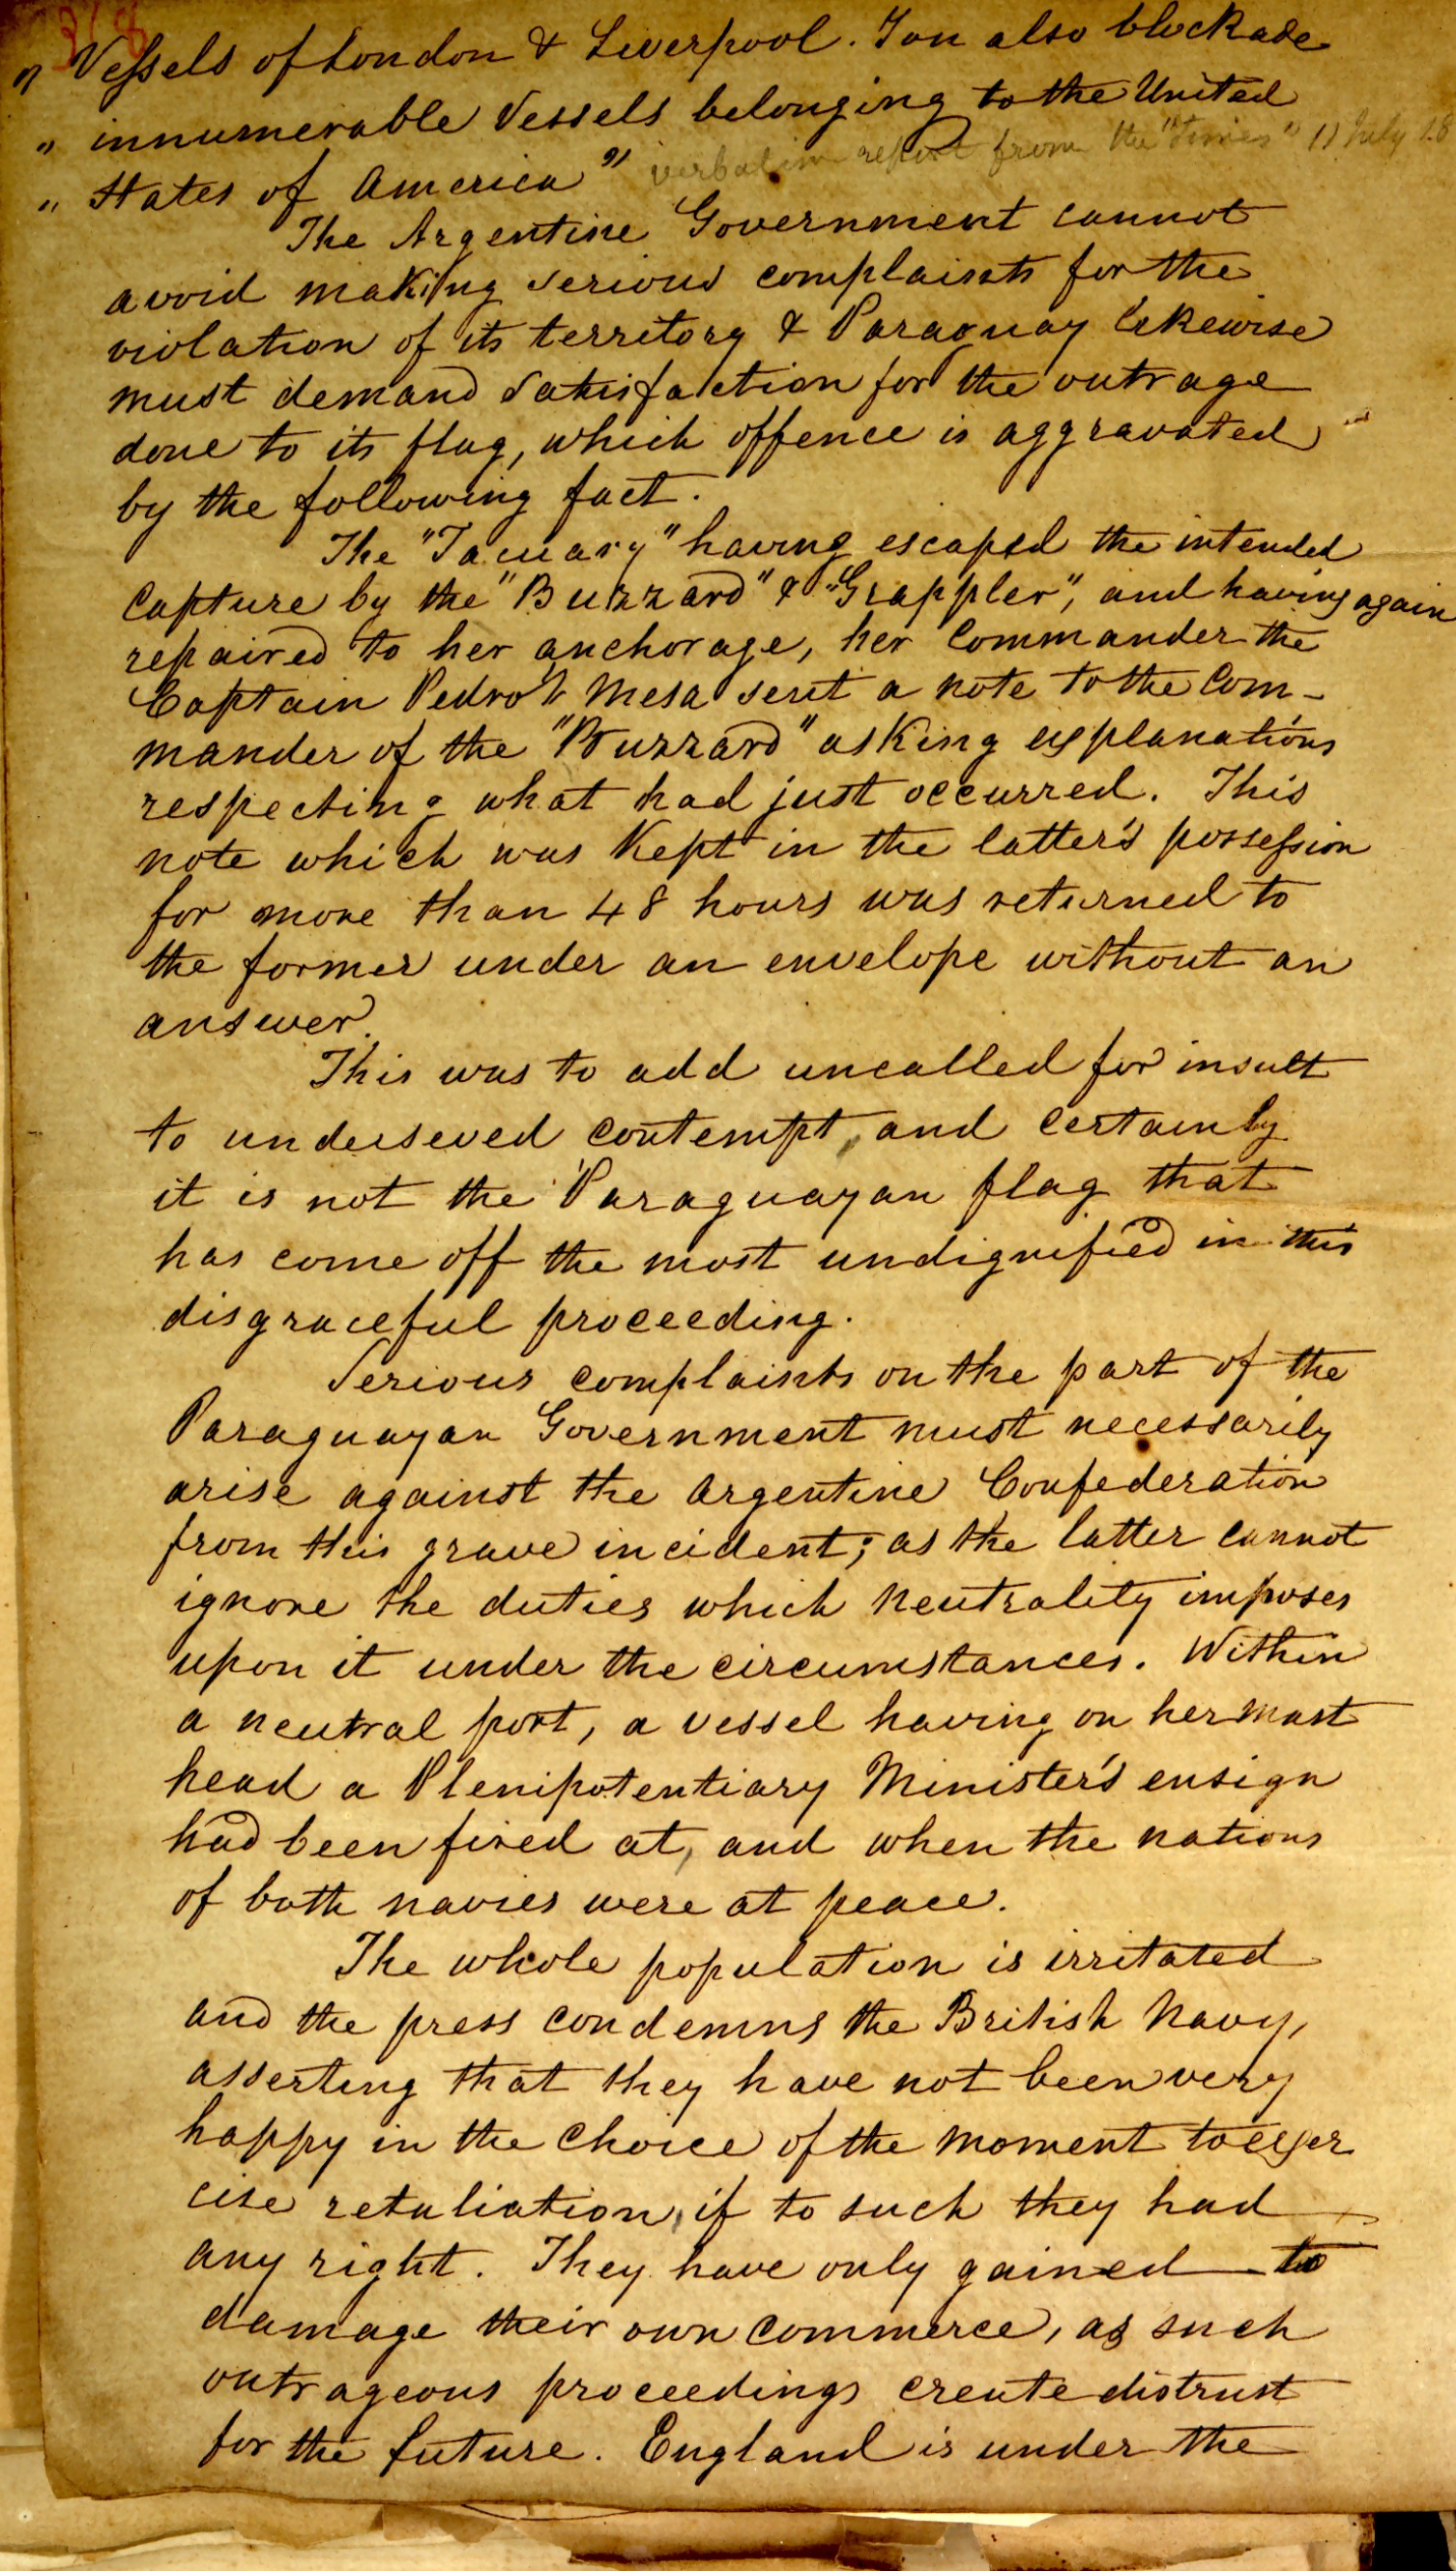 318
" Vessels of London & Liverpool. You also blockade
" innumerable Vessels belonging to the United
" States of America" verbatim report from the "Times" 11 July 18
The Argentine Government cannot
avoid making serious complaints for the
violation of its territory & Paraguay likewise
must demand satisfaction for the outrage
done to its flag, which offence is aggravated
by the following fact.
The "Tacuary" having escaped the intended
capture by the "Buzzard" & "Grappler", and having again
repaired to her anchorage, her Commander the
Captain Pedro Mesa sent a note to the Com-
mander of the "Buzzard" asking explanations
respecting what had just occurred. This
note which was kept in the latter's possession
for more than 48 hours was returned to
the former under an envelope without an
answer.
This was to add uncalled for insult
to underseved contempt, and certainly
it is not the Paraguayan flag that
has come off the most undignified in this
disgraceful proceeding.
Serious complaints on the part of the
Paraguayan Government must necessarily
arise against the Argentine Confederation
from this grave incident; as the latter cannot
ignore the duties which neutrality imposes
upon it under the circumstances. Within
a neutral port, a vessel having on her mast
head a Plenipotentiary Minister's ensign
had been fired at, and when the nations
of both navies were at peace.
The whole population is irritated
and the press condemns the British Navy,
asserting that they have not been very
happy in the choice of the moment to exer
cise retaliation, if to such they had
any right. They have only gained to
damage their own commerce, as such
outrageous proceedings create distrust
for the future. England is under the